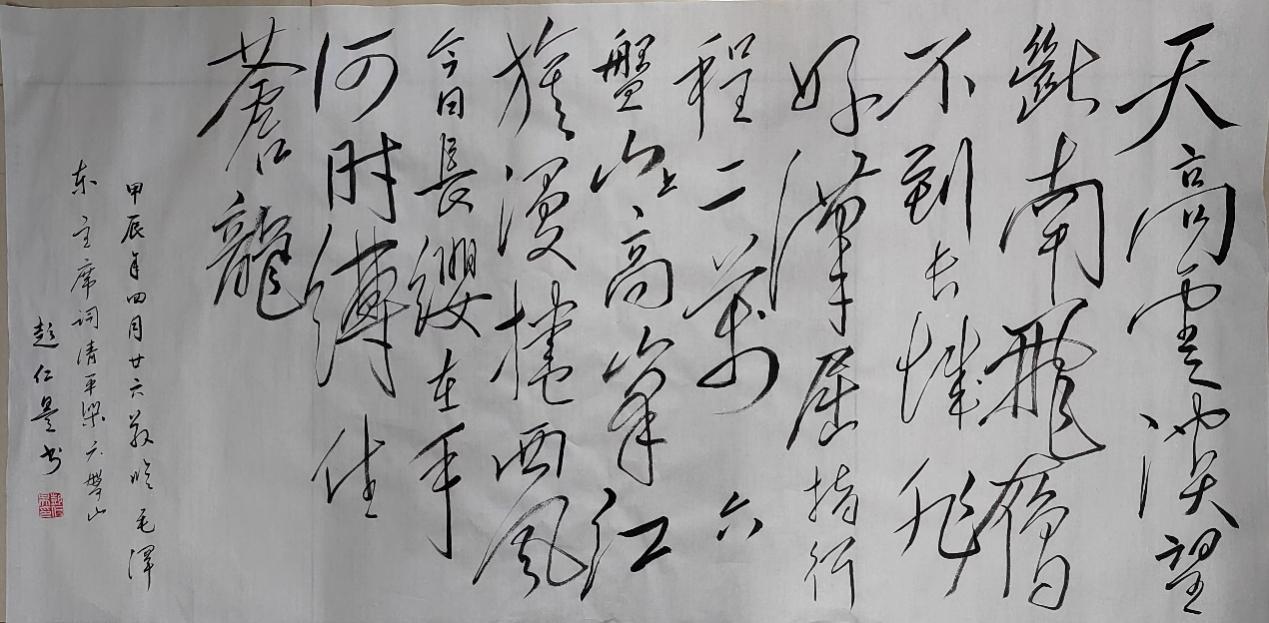 天高雲淡望
斷南飛雁
不到长城非
好漢屈指行
程二萬六
盤山上高峯红
旗漫捲西風
今日長纓在手
何时縛住
蒼龍
甲辰年四月廿六敬临毛澤
东主席词清平樂六盤山
仁书